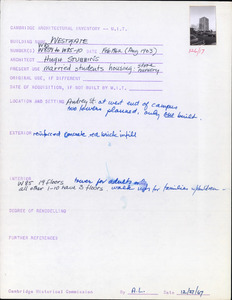 CAMBRIDGE ARCHITECTURAL INVENTORY -- M.I.T.
BUILDING NAME WESTGATE
NUMBER(S) W85 to W85-10 DATE (Aug 1963)
ARCHITECT Hugh Stubbins
PRESENT USE married students housing, store nursery
ORIGINAL USE, IF DIFFERENT
DATE OF ACQUISITION, IF NOT BUILT BY M.I.T.
LOCATION AND SITING Audrey St at west end of campus
two towers planned, only one built.
EXTERIOR reinforced concrete red brick infill
INTERIOR
W85 19 floors tower for adults only
all other 1-10 have 3 floors walk ups for families w/children
DEGREE OF REMODELLING
FURTHER REFERENCES
Cambridge Historical Commission By A.L. Date 12/22/67